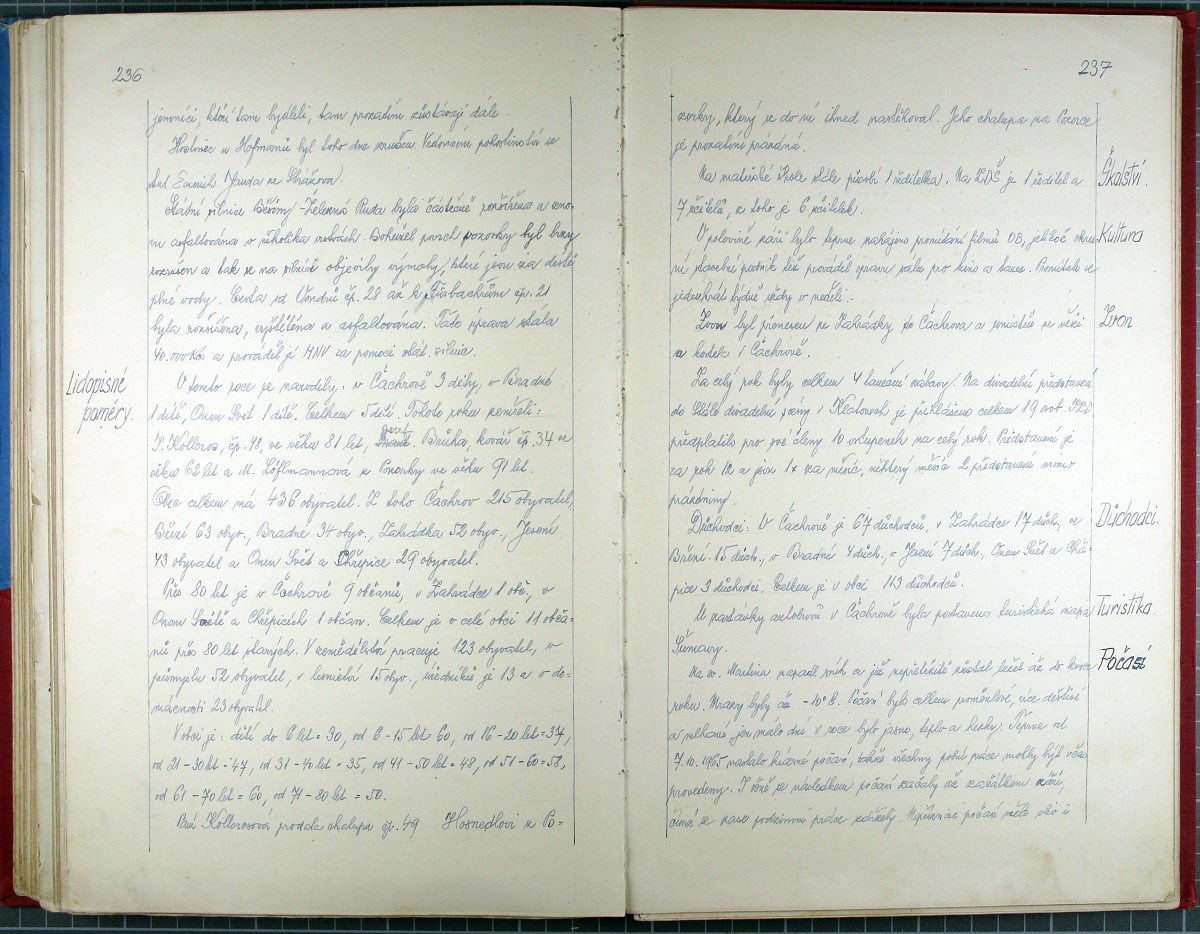 236
jemníci, kteří tam bydleli, tam prozatím zůstávají dále.
Hostinec u Hofmanů byl toho dne zrušen. Vedoucím pohostinství se
stal Jauda ze Strážova.
Státní silnice Běšiny - Železná Ruda byla částečně rozšířena a zno-
vu asfaltována v několika vrstvách. Bohužel povrch vozovky byl brzy
rozrušen a tak se na silnici objevily výmoly, které jsou za deště
plné vody. Cesta od Vondrů čp. 28 až k čp. 21
byla rozšířena, vyštětěna a asfaltována. Tato úprava stála
40.000 Kčs a prováděl ji MNV za pomoci stát. silnic.
Lidopisné
poměry.
V tomto roce se narodily: v Čachrově 3 děti, v Bradné
1 dítě, Onen Svět 1 dítě. Celkem 5 dětí. Tohoto roku zemřeli:
P. Kolloros, čp. 41, ve věku 81 let, Brůha, kovář čp. 34 ve
věku 62 let a M. Löflmannová z Pozorky ve věku 91 let.
Obec celkem má 436 obyvatel. Z toho Čachrov 215 obyvatel,
Březí 63 obyv., Bradné 34 obyv., Zahrádka 52 obyv., Jesení
43 obyvatel a Onen Svět a Chřepice 29 obyvatel.
Přes 80 let je v Čachrově 9 občanů, v Zahrádce 1 obč., v
Onom Světě a Chřepicích 1 občan. Celkem je v celé obci 11 obča-
nů přes 80 let starých. V zemědělství pracuje 123 obyvatel, v
průmyslu 52 obyvatel, v lesnictví 15 obyv., úředníků je 13 a v do-
mácnosti 23 obyvatel.
V obci je: dětí do 6 let = 30, od 6 - 15 let = 60, od 16 - 20 let = 37,
od 21 - 30 let = 47, od 31 - 40 let = 35, od 41 - 50 let = 48, od 51 - 60 = 58,
od 61 - 70 let = 60, od 71 - 80 let = 50.
Paní Kollorosová prodala chalupu čp. 49 Hosnedlovi z Po-
237
zorky, který se do ní ihned nastěhoval. Jeho chalupa na Pozorce
je prozatím prázdná.
Školství.
Na mateřské škole stále působí 1 ředitelka. Na ZDŠ je 1 ředitel a
7 učitelů, z toho je 6 učitelek.
Kultura
V polovině září bylo teprve zahájeno promítání filmů OB, jelikož okres-
ní stavební podnik též prováděl opravu sálu pro kino a tanec. Promítalo se
jedenkrát týdně vždy v neděli.
Zvon
Zvon byl přenesen ze Zahrádky do Čachrova a umístěn ve věži
u kostela v Čachrově.
Za celý rok byly celkem 4 taneční zábavy. Na divadelní představení
do stálé divadelní scény v Klatovech je přihlášeno celkem 19 osob. JZD
předplatilo pro své členy 10 vstupenek na celý rok. Představení je
za rok 12 a jsou 1x za měsíc, některý měsíc 2 představení mimo
prázdniny.
Důchodci.
Důchodci. V Čachrově je 67 důchodců, v Zahrádce 17 důch., ve
Březí 15 důch., v Bradné 4 důch., v Jesení 7 důch., Onen Svět a Chře-
pice 3 důchodci. Celkem je v obci 113 důchodců.
Turistika.
U zastávky autobusů v Čachrově byla postavena turistická mapa
Šumavy.
Počasí
Na sv. Martina napadl sníh a již nepřetržitě zůstal ležet až do konce
roku. Mrazy byly až -10° C. Počasí bylo celkem proměnlivé, více deštivé
a mlhavé, jen málo dní v roce bylo jasno, teplo a hezky. Teprve od
7.10.1965 nastalo krásné počasí, takže všechny polní práce mohly být včas
provedeny. I žně se následkem počasí začaly až začátkem září,
čímž se zase podzimní práce zdržely. Nepříznivé počasí mělo vliv i